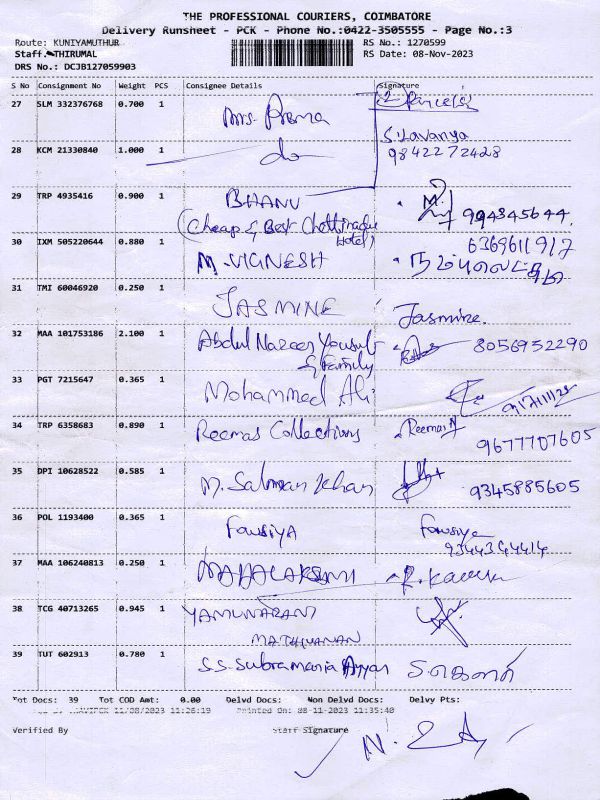 THE PROFESSIONAL COURIERS, COIMBATORE
Delivery Runsheet - PCK - Phone No.:0422-3505555 - Page No.:3
Route: KUNIYAMUTHUR
RS No.: 1270599
Staff. THIRUMAL
RS Date: 08-Nov-2023
DRS No.: DCJB127059903
S No Consignment No Weight PCS Consignee Details Signature
27 SLM 332376768 0.700 1 Mrs. Prema 2 Parcels
S. Lavanya
28 KCM 21330840 1.000 1 do 9842272428
29 TRP 4935416 0.900 1 BHANU 994845644
(Cheap & Best Chettinadu Hotel)
30 IXM 505220644 0.880 1 M. VIGNESH 6369611917
31 TMI 60046920 0.250 1 JASMINE Jasmine.
32 MAA 101753186 2.100 1 Abdul Nazeer Yousuf & Family 8056952290
33 PGT 7215647 0.365 1 Mohammed Ali
34 TRP 6358683 0.890 1 Reemas Collections Reemas 9677707605
35 DPI 10628522 0.585 1 M. Salman Khan 9345885605
36 POL 1193400 0.365 1 Fousiya Fousiya
9344344414
37 MAA 106240813 0.250 1 MAHALAKSMI
38 TCG 40713265 0.945 1 YAMUNARANI
MATHIVANAN
39 TUT 602913 0.780 1 S.S. Subramania Ayyar
Tot Docs: 39 Tot COD Amt: 0.00 Delvd Docs: Non Delvd Docs: Delvy Pts:
11/08/2023 11:26:19 Printed On: 08-11-2023 11:35:40
Verified By Staff Signature